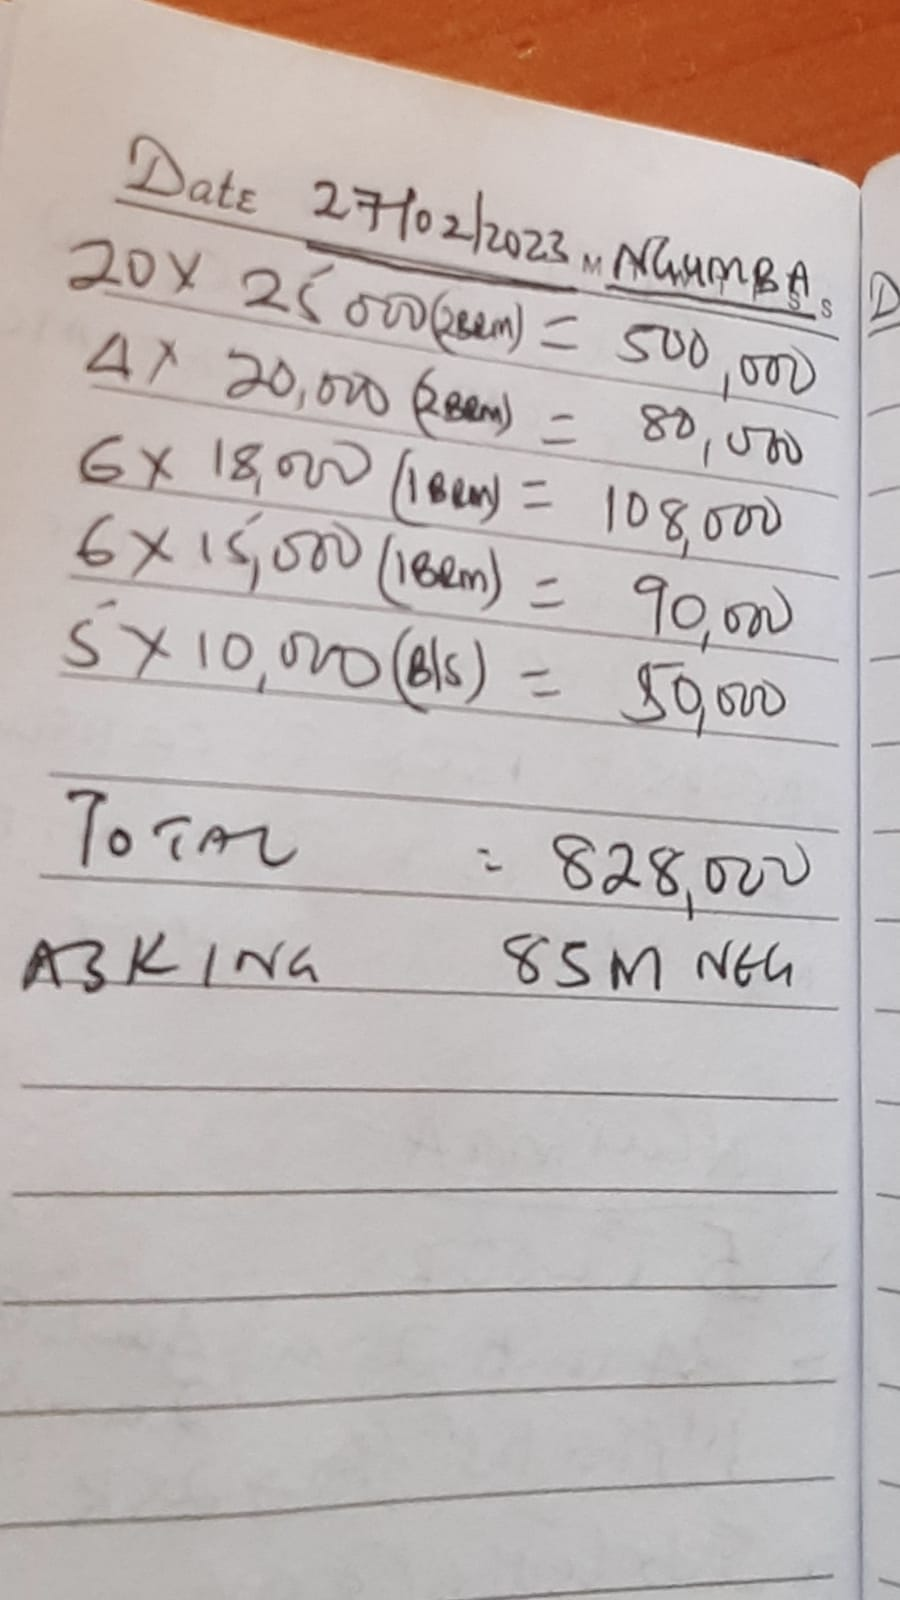 Date 27/02/2023 M NGUMBA S S
20 X 25 000 (2BRM) = 500,000
4 X 20,000 (2BRM) = 80,000
6 X 18,000 (1BRM) = 108,000
6 X 15,000 (1BRM) = 90,000
5 X 10,000 (B/S) = 50,000
TOTAL = 828,000
ASKING 85M NEG